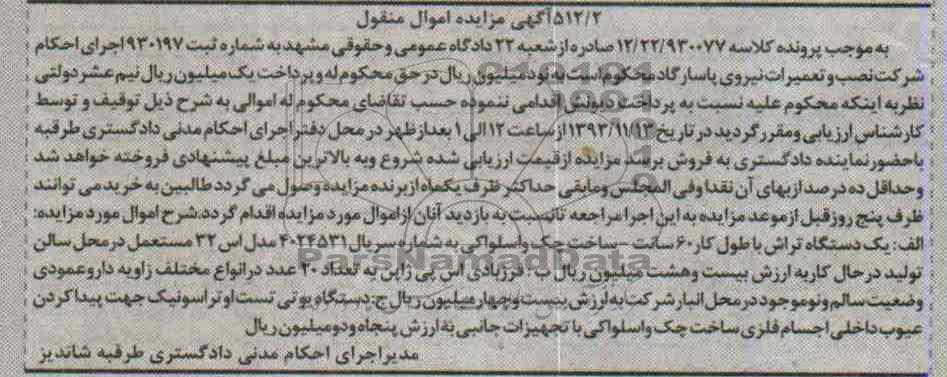 ۵۱۲/۲آگهی مزایده اموال منقول
به موجب پرونده کلاسه ۱۲/۲۲/۹۳۰۰۷۷ صادره از شعبه ۲۲ دادگاه عمومی و حقوقی مشهد به شماره ثبت ۹۳۰۱۹۷ اجرای احکام
شرکت نصب و تعمیرات نیروی پاسارگاد محکوم است به نود میلیون ریال در حق محکوم له و پرداخت یک میلیون ریال نیم عشر دولتی
نظر به اینکه محکوم علیه نسبت به پرداخت دیونش اقدامی ننموده حسب تقاضای محکوم له اموالی به شرح ذیل توقیف و توسط
کارشناس ارزیابی و مقرر گردید در تاریخ ۱۳۹۳/۱۱/۱۳ از ساعت ۱۲ الی ۱ بعدازظهر در محل دفتر اجرای احکام مدنی دادگستری طرقبه
با حضور نماینده دادگستری به فروش برسد مزایده از قیمت ارزیابی شده شروع و به بالاترین مبلغ پیشنهادی فروخته خواهد شد
وحداقل ده درصد از بهای آن نقدا وفی المجلس ومابقی حداکثر ظرف یکماه از برنده مزایده وصول می گردد طالبین به خرید می توانند
ظرف پنج روز قبل از موعد مزایده به این اجرا مراجعه تا نسبت به بازدید آنان از اموال مورد مزایده اقدام گردد.شرح اموال مورد مزایده:
الف: یک دستگاه تراش با طول کار ۶۰ سانت – ساخت چک واسلواکی به شماره سریال ۴۰۲۴۵۳۱ مدل اس ۳۲ مستعمل در محل سالن
تولید در حال کار به ارزش بیست وهشت میلیون ریال ب: فرزبادی اس پی ژاپن به تعداد ۲۰ عدد در انواع مختلف زاویه دار وعمودی
وضعیت سالم و نو موجود در محل انبار شرکت به ارزش بیست و چهار میلیون ریال ج: دستگاه یوتی تست اوتراسونیک جهت پیدا کردن
عیوب داخلی اجسام فلزی ساخت چک واسلواکی با تجهیزات جانبی به ارزش پنجاه و دو میلیون ریال
مدیر اجرای احکام مدنی دادگستری طرقبه شاندیز
ParsNamadData